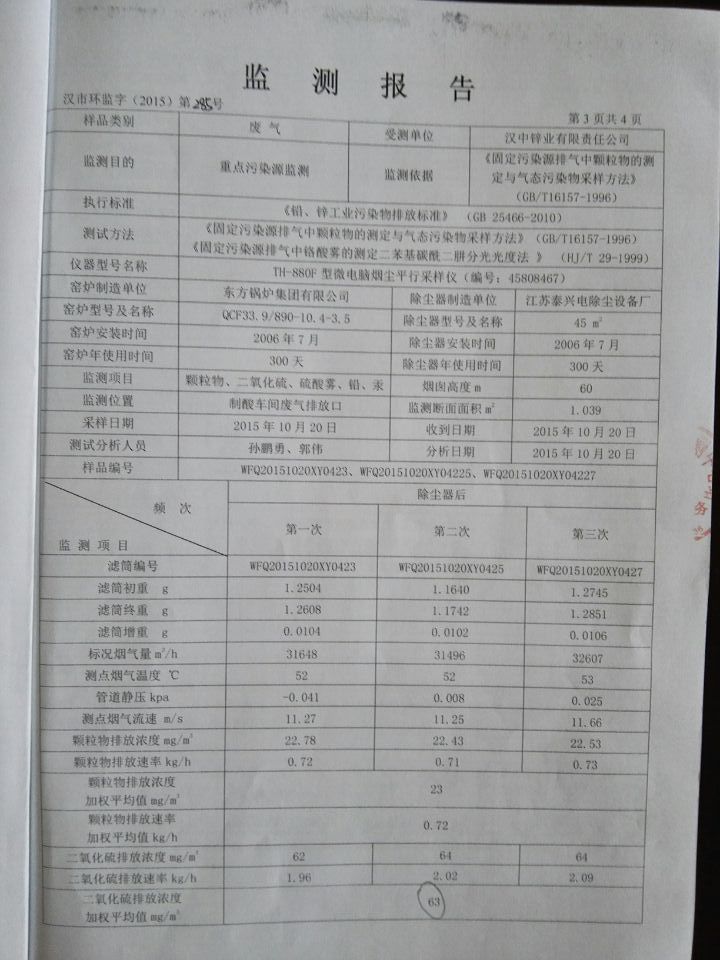 监 测 报 告
汉市环监字（2015）第285号
第 3 页共 4 页
样品类别 废 气 受测单位 汉中锌业有限责任公司
监测目的 重点污染源监测 监测依据 《固定污染源排气中颗粒物的测
定与气态污染物采样方法》
（GB/T16157-1996）
执行标准 《铅、锌工业污染物排放标准》 （GB 25466-2010）
测试方法 《固定污染源排气中颗粒物的测定与气态污染物采样方法》（GB/T16157-1996）
《固定污染源排气中铬酸雾的测定二苯基碳酰二肼分光光度法 》 （HJ/T 29-1999）
仪器型号名称 TH-880F 型微电脑烟尘平行采样仪（编号：45808467）
窑炉制造单位 东方锅炉集团有限公司 除尘器制造单位 江苏泰兴电除尘设备厂
窑炉型号及名称 QCF33.9/890-10.4-3.5 除尘器型号及名称 45 m²
窑炉安装时间 2006 年 7 月 除尘器安装时间 2006 年 7 月
窑炉年使用时间 300 天 除尘器年使用时间 300 天
监测项目 颗粒物、二氧化硫、硫酸雾、铅、汞 烟囱高度 m 60
监测位置 制酸车间废气排放口 监测断面面积 m² 1.039
采样日期 2015 年 10 月 20 日 收到日期 2015 年 10 月 20 日
测试分析人员 孙鹏勇、郭伟 分析日期 2015 年 10 月 20 日
样品编号 WFQ20151020XY0423、WFQ20151020XY04225、WFQ20151020XY04227
频 次 除尘器后
监 测 项 目 第一次 第二次 第三次
滤筒编号 WFQ20151020XY0423 WFQ20151020XY0425 WFQ20151020XY0427
滤筒初重 g 1.2504 1.1640 1.2745
滤筒终重 g 1.2608 1.1742 1.2851
滤筒增重 g 0.0104 0.0102 0.0106
标况烟气量 m³/h 31648 31496 32607
测点烟气温度 ℃ 52 52 53
管道静压 kpa -0.041 0.008 0.025
测点烟气流速 m/s 11.27 11.25 11.66
颗粒物排放浓度 mg/m³ 22.78 22.43 22.53
颗粒物排放速率 kg/h 0.72 0.71 0.73
颗粒物排放浓度
加权平均值 mg/m³ 23
颗粒物排放速率
加权平均值 kg/h 0.72
二氧化硫排放浓度 mg/m³ 62 64 64
二氧化硫排放速率 kg/h 1.96 2.02 2.09
二氧化硫排放浓度
加权平均值 mg/m³ 63